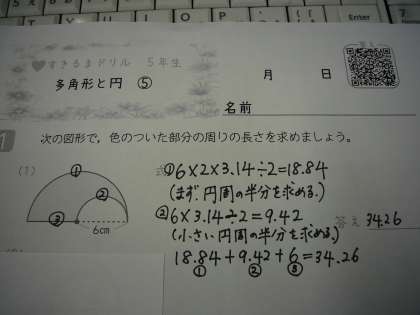 Enter
すきるまドリル 5年生
多角形と円 ⑤
月 日
名前
1 次の図形で，色のついた部分の周りの長さを求めましょう。
(1)
① ② ③
6cm
①6×2×3.14÷2=18.84
(まず円周の半分を求める。)
②6×3.14÷2=9.42
(小さい円周の半分を求める。)
18.84+9.42+6=34.26
① ② ③
答え 34.26